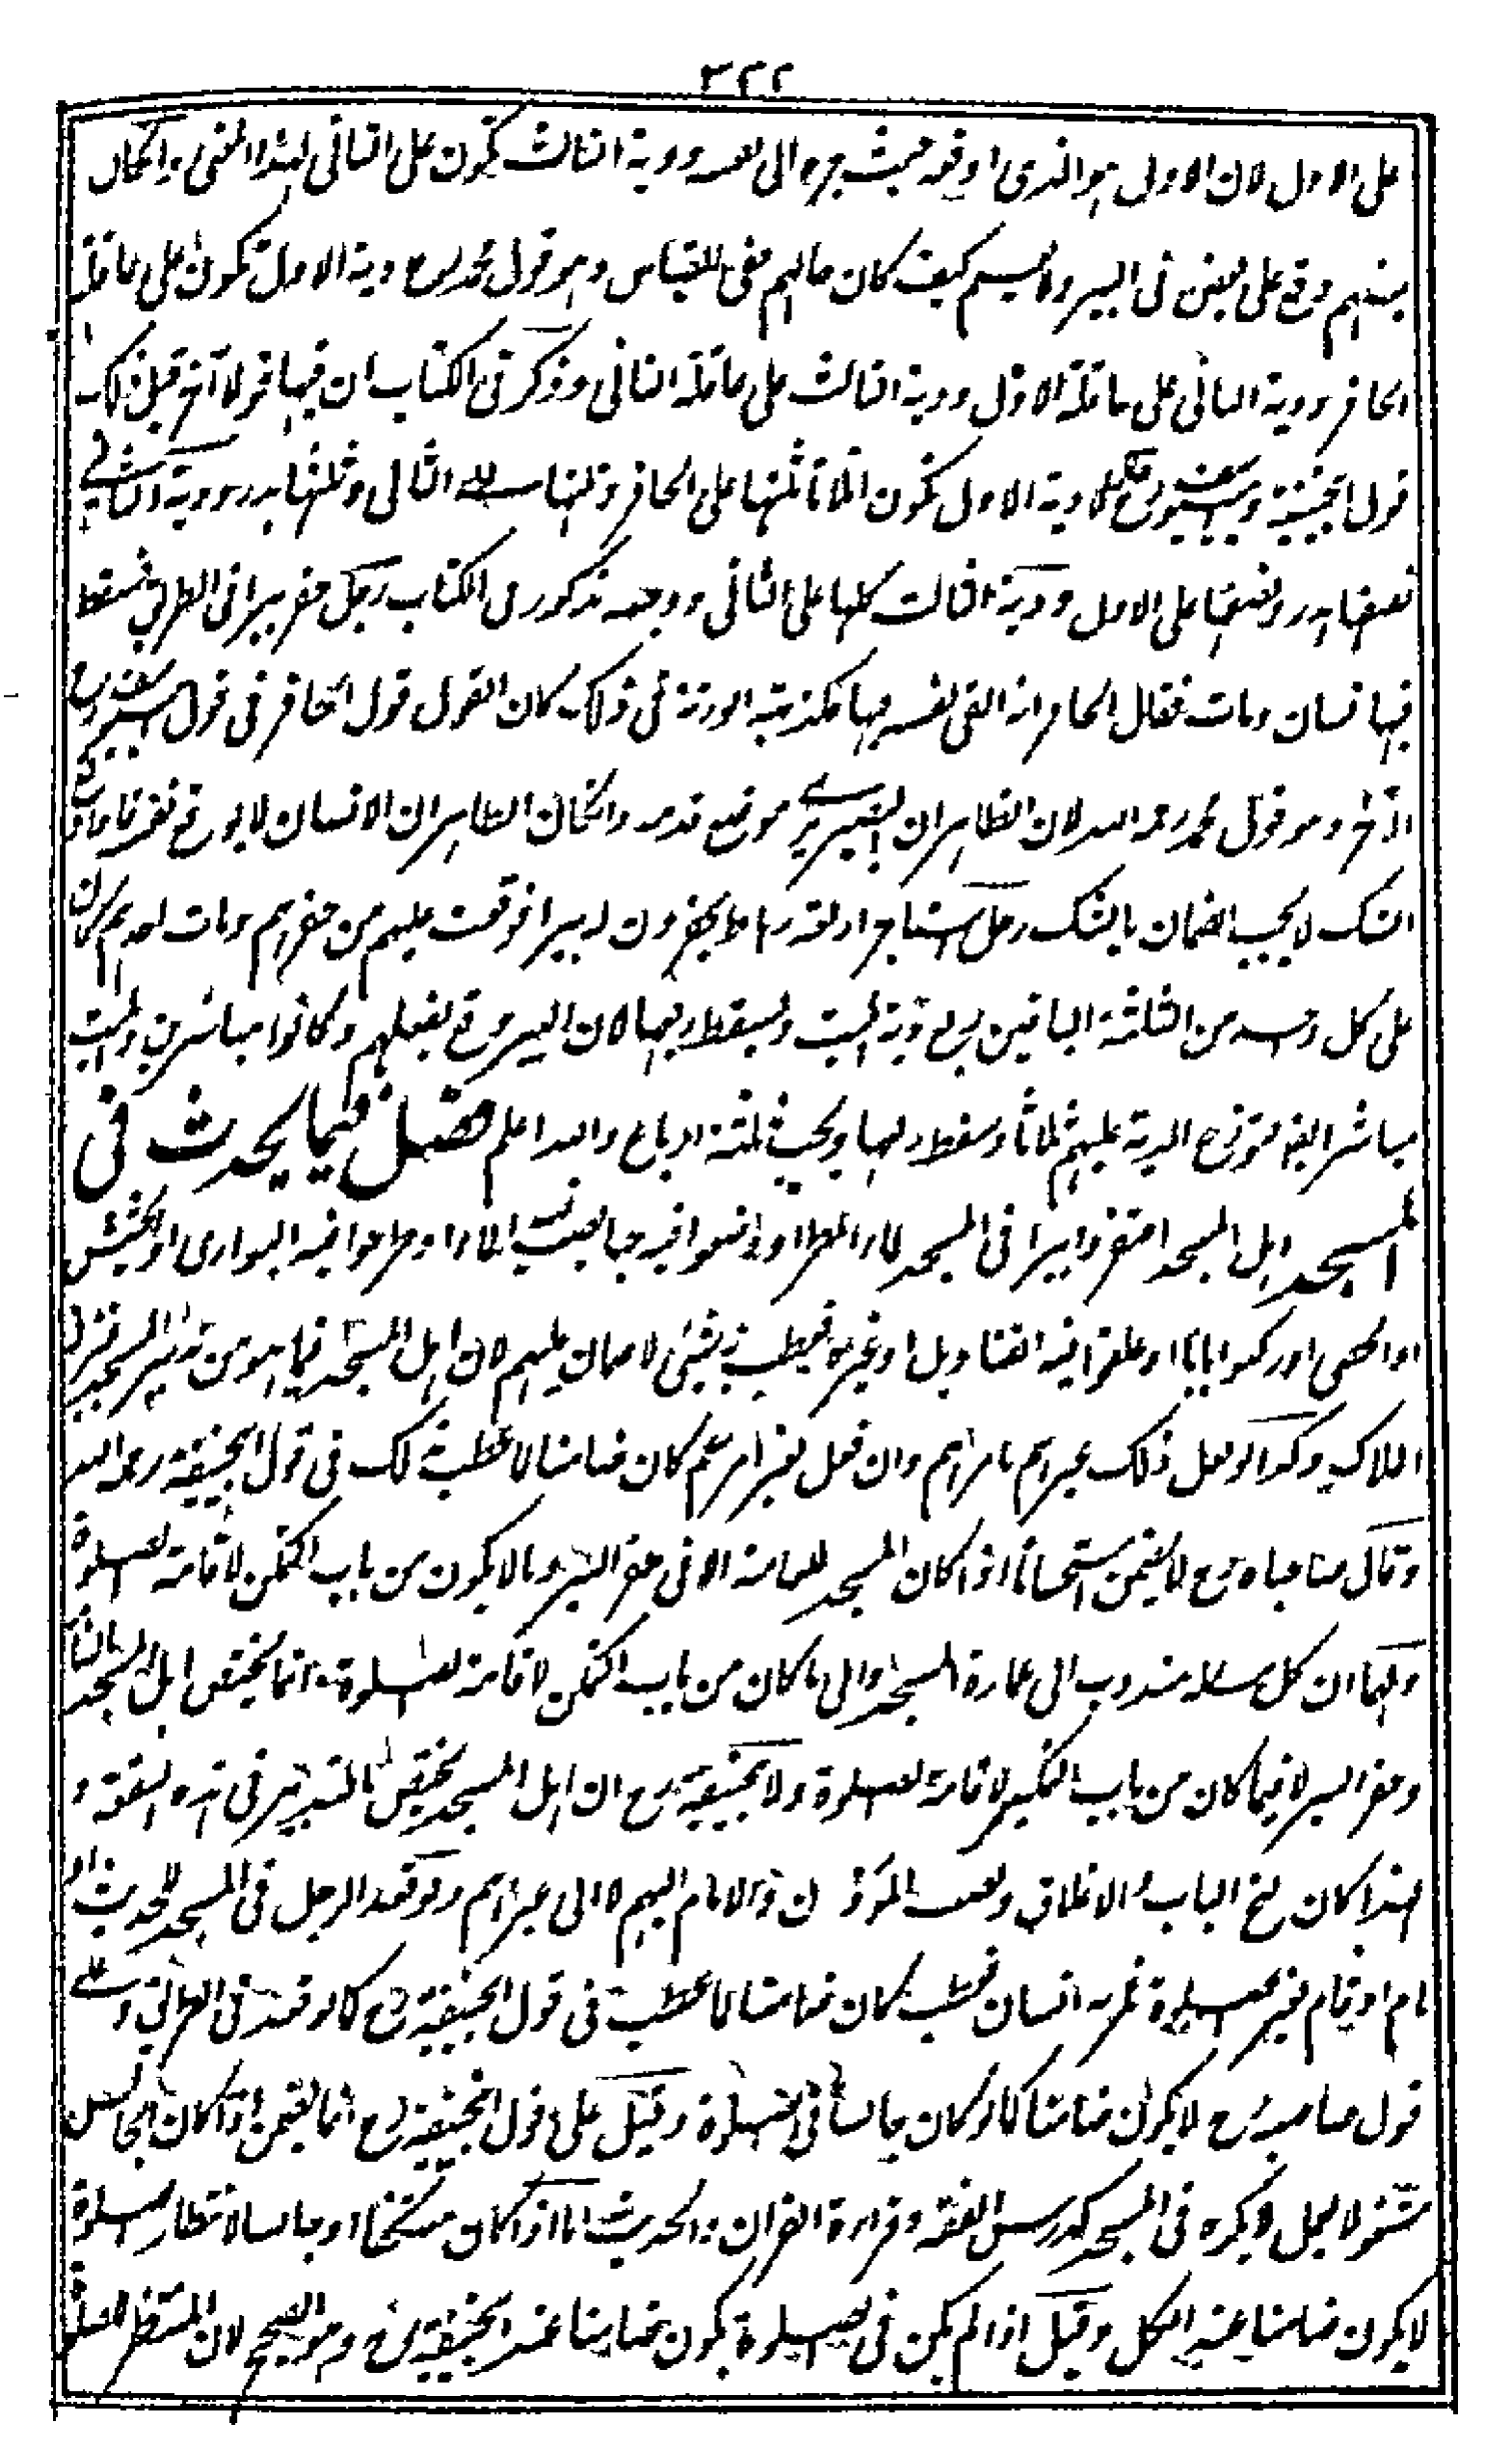 ٣٢٢
على الاول لان الاول هو الذى اوقعه حيث جره الى نفسه ودية الثالث تكون على الثانى لهذا المعنى وان كان
بعضهم وقع على بعض فى البير ولا يعلم كيف كان حالهم ففى القياس وهو قول محمد رح دية الاول تكون على عاقلة
الحافر ودية الثانى على عاقلة الاول ودية الثالث على عاقلة الثانى وذكر فى الكتاب ان فيها قولا آخر قيل ذلك
قول ابيحنيفة وابى يوسف رح دية الاول تكون اثلاثا ثلثها على الحافر وثلثها على الثانى وثلثها هدر ودية الثانى
نصفها هدر ونصفها على الاول ودية الثالث كلها على الثانى ووجهه مذكور فى الكتاب رجل حفر بيرا فى الطريق فسقط
فيها انسان ومات فقال الحافر انه القى نفسه فيها وكذبته الورثة فى ذلك كان القول قول الحافر فى قول ابى يوسف رح
الآخر وهو قول محمد رحمه الله لان الظاهر ان البصير يرى موضع قدمه وان كان الظاهر ان الانسان لا يوقع نفسه فاذا وقع
الشك لا يجب الضمان بالشك رجل استاجر اربعة رهط يحفرون له بيرا فوقعت عليهم من حفرهم ومات احدهم كان
على كل واحد من الثلثة الباقين ربع دية الميت ويسقط ربعها لان البير وقع بفعلهم وكانوا مباشرين والميت
مباشر ايضا فتوزع الدية عليهم ارباعا وسقط ربعها ويجب ثلثة ارباع والله اعلم فصل فيما يحدث فى
المسجد اهل المسجد احتفروا بيرا فى المسجد لماء المطر او وضعوا فيه حبا يصب فيه الماء او طرحوا فيه البوارى او الحشيش
او الحصى او ركبوا بابا او علقوا فيه القناديل او غيره فعطب به شئ لا ضمان عليهم لان اهل المسجد فيما هو من تدبير المسجد بمنزلة
الملاك وكذا لو فعل ذلك غيرهم بامرهم وان فعل بغير امرهم كان ضامنا لما عطب بذلك فى قول ابيحنيفة رحمه الله
وقال صاحباه رح لا يضمن استحسانا اذا كان المسجد للعامة الا فى حفر البير وما لا يكون من باب التمكن لاقامة الصلوة
ولهما ان كل مسلم مندوب الى عمارة المسجد والى ما كان من باب التمكن لاقامة الصلوة وانما يختص اهل المسجد بالبناء
وحفر البير لا فيما كان من باب التمكن لاقامة الصلوة ولابيحنيفة رح ان اهل المسجد يختص بالتدبير فى هذه البقعة و
لهذا كان فتح الباب والاغلاق ونصب المؤذن والامام اليهم لا الى غيرهم ولو قعد الرجل فى المسجد لحديث او
نام او قام لغير الصلوة فمر به انسان فعطب كان ضامنا لما عطب فى قول ابيحنيفة رح كما لو قعد فى الطريق وعلى
قول صاحبيه رح لا يكون ضامنا كما لو كان جالسا فى الصلوة وقيل على قول ابيحنيفة رح انما يضمن اذا كان الجالس
مشغولا بعمل لا يكره فى المسجد كدرس الفقه وقراءة القران والحديث اما اذا كان معتكفا او جالسا لانتظار الصلوة
لا يكون ضامنا عند الكل وقيل اذا لم يكن فى الصلوة يكون ضامنا عند ابيحنيفة رح وهو الصحيح لان المنتظر للصلوة